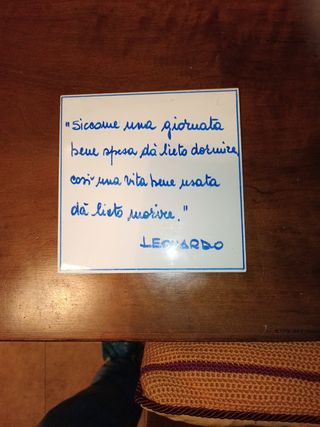 "Siccome una giornata
bene spesa dà lieto dormire,
così una vita bene usata
dà lieto morire."
LEONARDO